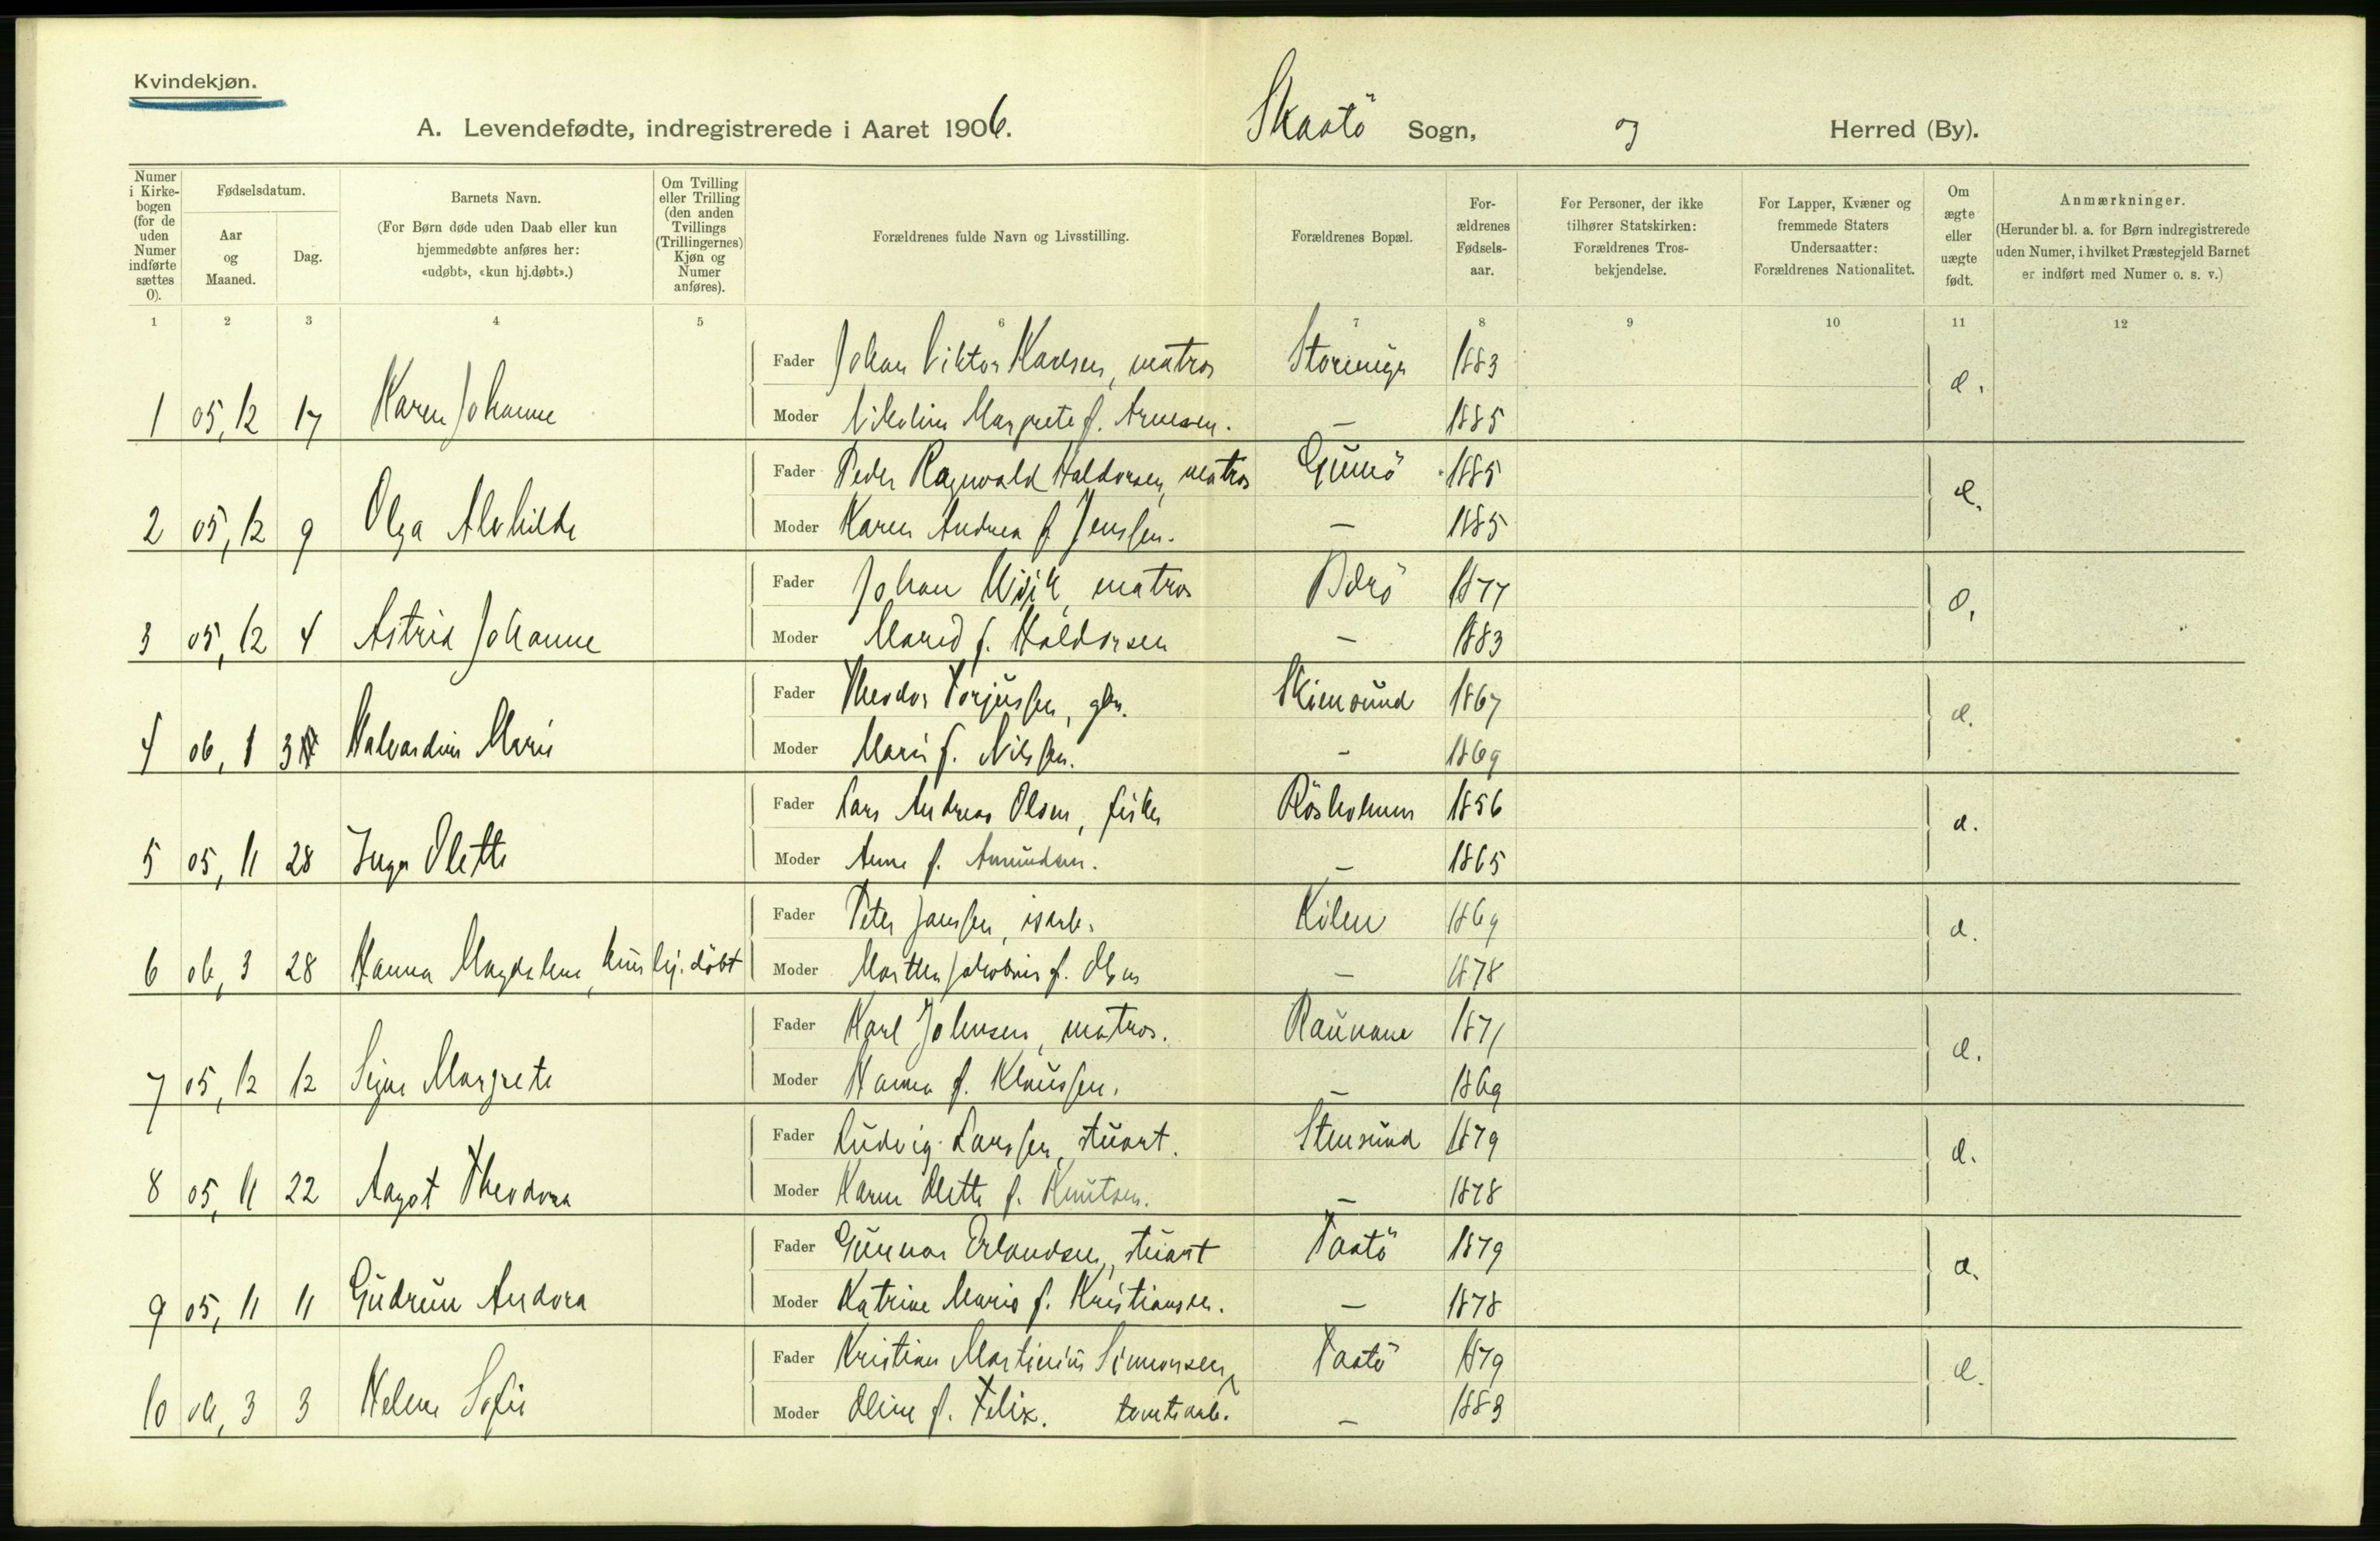 Kvindekjøn.
A. Levendefødte, indregistrerede i Aaret 1906. Skaatö Sogn, og Herred (By).
Numer i Kirkebogen (for de uden Numer indførte sættes 0).
Fødselsdatum.
Aar og Maaned.
Dag.
Barnets Navn.
(For Børn døde uden Daab eller kun hjemmedøbte anføres her: «udøbt», «kun hj.døbt».)
Om Tvilling eller Trilling (den anden Tvillings (Trillingernes) Kjøn og Numer anføres).
Forældrenes fulde Navn og Livsstilling.
Forældrenes Bopæl.
Forældrenes Fødselsaar.
For Personer, der ikke tilhører Statskirken: Forældrenes Trosbekjendelse.
For Lapper, Kvæner og fremmede Staters Undersaatter: Forældrenes Nationalitet.
Om ægte eller uægte født.
Anmærkninger.
(Herunder bl. a. for Børn indregistrerede uden Numer, i hvilket Præstegjeld Barnet er indført med Numer o. s. v.)
1 2 3 4 5 6 7 8 9 10 11 12
Fader Johan Viktor Karlsen, matros 1883
1 05, 12 17 Karen Johanne Moder Nikoline Margrete f. Arnesen. — 1885
Fader Peder Ragnvald Haldorsen, matros Gumö 1885
2 05, 12 9 Olga Alvhilde Moder Karen Andrea f. Jenssen. — 1885
Fader Johan Wiik, matros Börö 1877
3 05, 12 4 Astrid Johanne Moder f. Haldorsen — 1883
Fader Theodor Torjussen, Skiensund 1867
4 06, 1 3 Halvardine Marie Moder Marie f. Nilssen. - 1869
Fader Lars Andreas Olsen, fisker Rösholmen 1856
5 05, 11 28 Inga Olette Moder Anne f. Amundsen. — 1865
Fader Peter Janssen, isarb. Kilen 1869
6 06, 3 28 Hanna Magdalene, kun hj.döbt Moder Marthe Jakobine f. Olsen — 1878
Fader Karl Johnsen, matros. Raunane 1871
7 05, 12 12 Signe Margrete Moder Hanna f. Klaussen. — 1869
Fader Ludvig Larssen, stuart. Stensund 1879
8 05, 11 22 Aagot Theodora Moder Karen Olette f. Knutsen. — 1878
Fader Gunnar Erlandsen, stuart Taatö 1879
9 05, 11 11 Gudrun Andora Moder Katrine Marie f. Kristiansen. — 1878
Fader Kristian Martinius Simonsen, Taatö 1879
10 06, 3 3 Helene Sofie Moder Oline f. Felix. tomtearb. — 1883